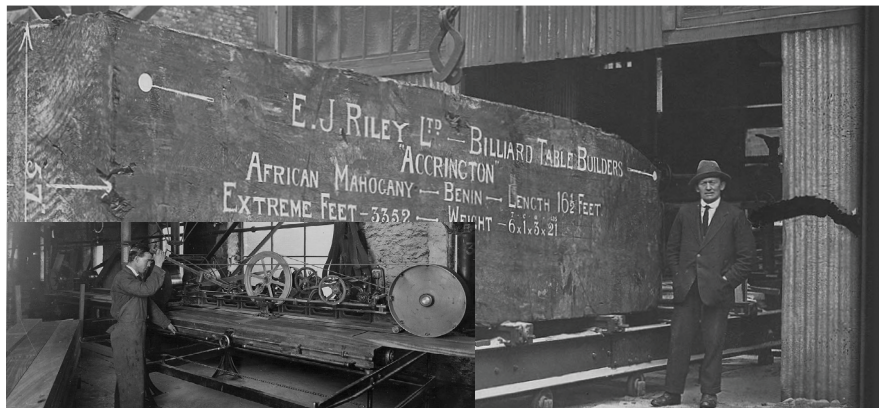 E. J. RILEY LTD — BILLIARD TABLE BUILDERS
"ACCRINGTON"
AFRICAN MAHOGANY — BENIN — LENGTH 16½ FEET
EXTREME FEET - 3352 — WEIGHT - 6 x 1 x 3 x 21